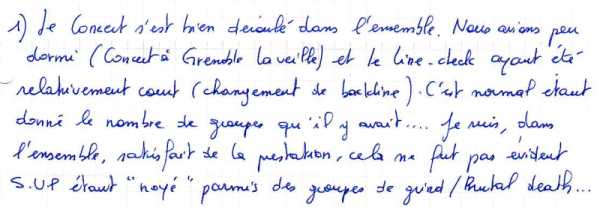 1) Le Concert s'est bien déroulé dans l'ensemble. Nous avions peu
dormi (Concert à Grenoble la veille) et le line-check ayant été
relativement court (changement de backline). C'est normal étant
donné le nombre de groupes qu'il y avait.... Je suis, dans
l'ensemble, satisfait de la prestation, cela ne fut pas évident
S.UP étant "noyé" parmis des groupes de grind / Brutal death...